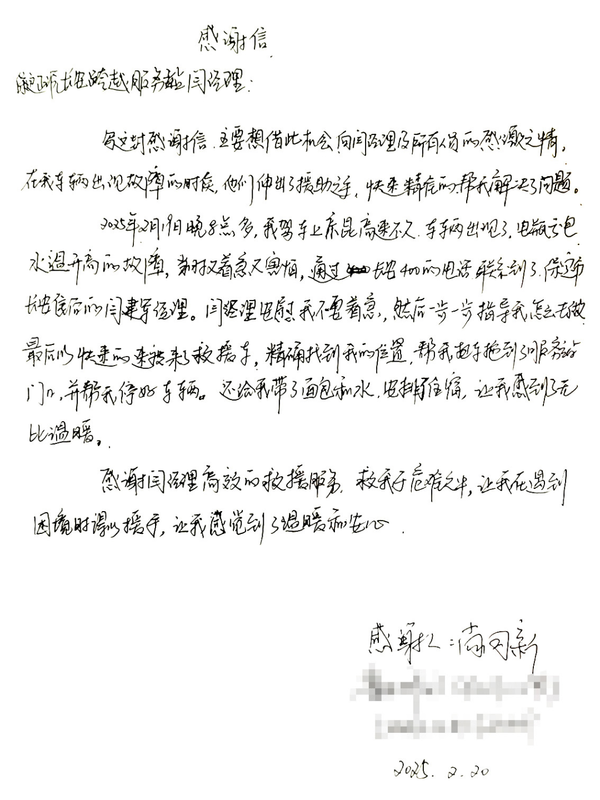 感谢信
长安跨越服务站闫经理：
写这封感谢信，主要想借此机会向闫经理及所有人员的感激之情，
在我车辆出现故障的时候，他们伸出了援助之手，快速精准的帮我解决了问题。
2025年2月19日晚8点多，我驾车上京昆高速不久，车辆出现了，电瓶亏包
水温升高的故障，当时又着急又害怕，通过长安400的电话联系到了，保定市
长安售后的闫建军经理。闫经理安慰我不要着急，然后一步一步指导我怎么去做
最后以快速的速度来了救援车，精确找到我的位置，帮我把车拖到了服务站
门口，并帮我停好车辆。还给我带了面包和水，安排住宿，让我感到了无
比温暖。
感谢闫经理高效的救援服务，救我于危难之中，让我在遇到
困境时得以援手，让我感觉到了温暖和安心
感谢人：尚
2025.2.20